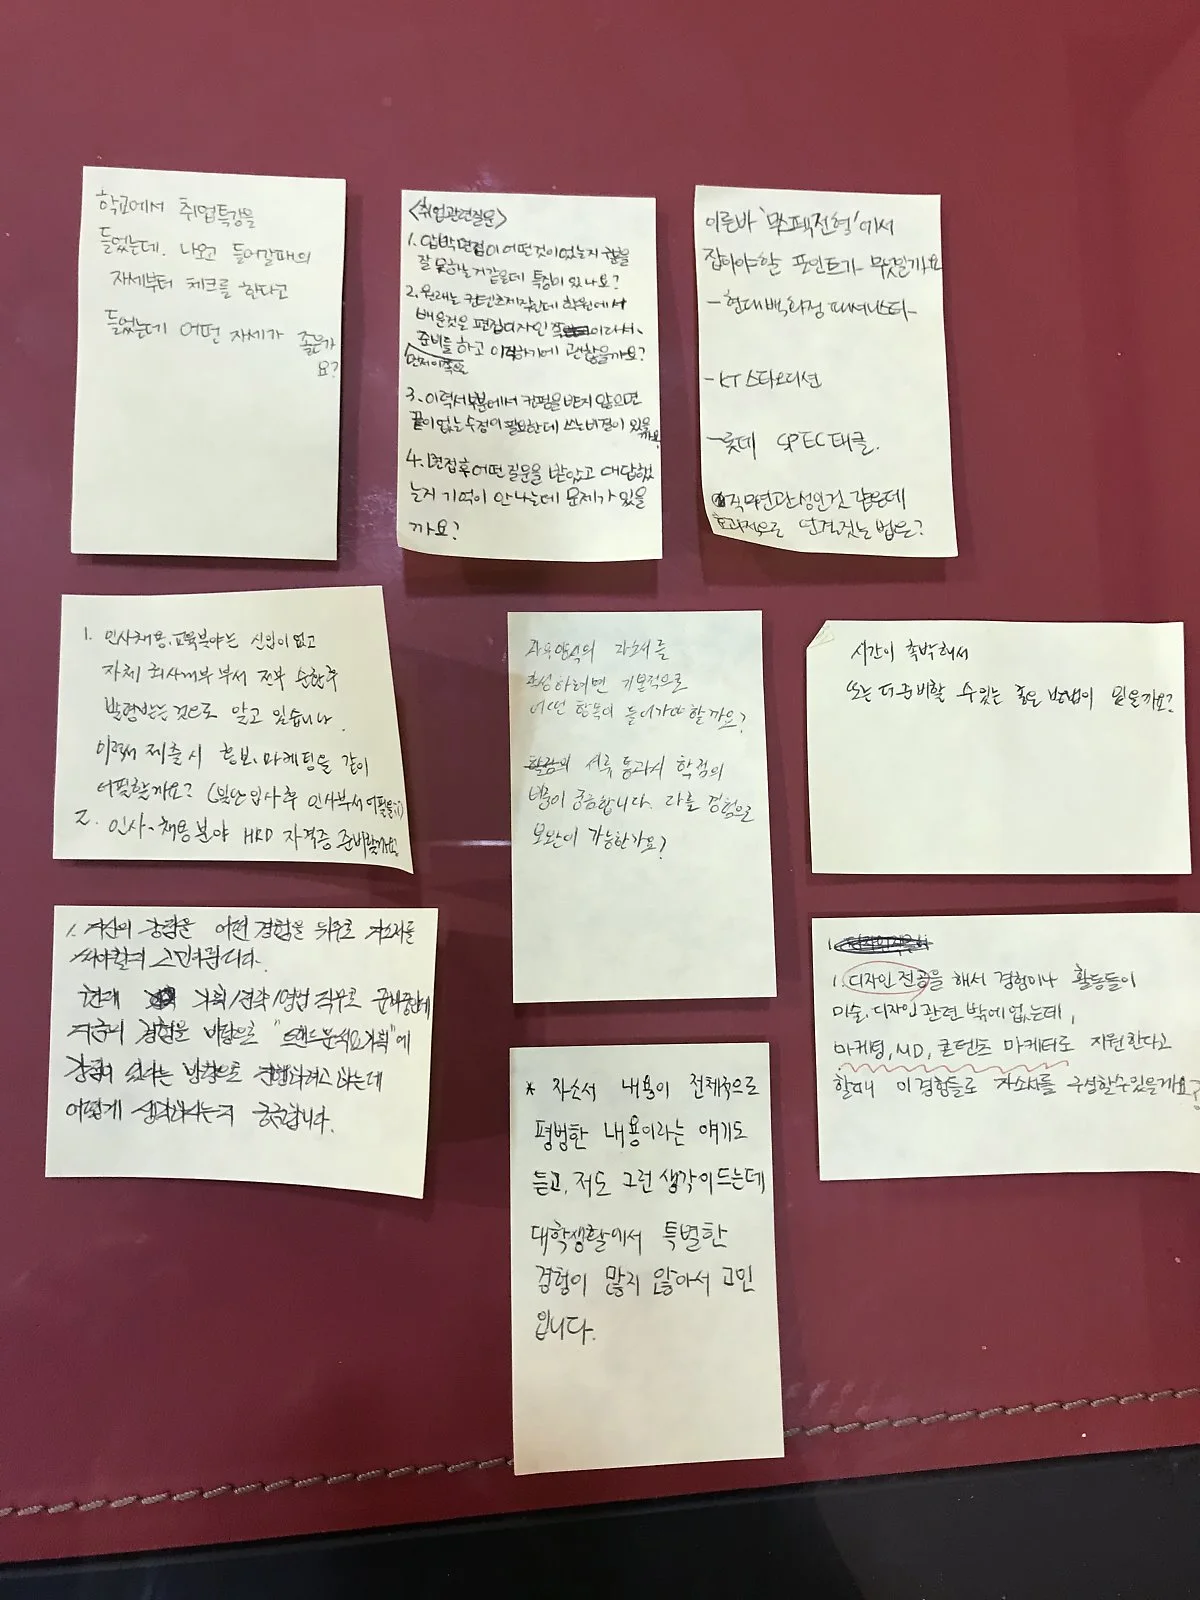 학교에서 취업특강을
들었는데. 나오고 들어갈때의
자세부터 체크를 한다고
들었는데 어떤 자세가 좋은가
요?
<취업관련질문>
1. 압박면접이 어떤것이었는지 구분을
잘 못하는거같은데 특징이 있나요?
2. 원래는 컨텐츠제작인데 학원에서
배운것은 편집디자인 이라서,
준비를 하고 이직하기에 괜찮을까요?
먼저이쪽으로
3. 이력서부분에서 컨펌을 받지 않으면
끝이없는 수정이 필요한데 쓰는비결이 있을
까요?
4. 면접후 어떤 질문을 받았고 대답했
는지 기억이 안나는데 문제가 있을
까요?
이른바 '무스펙전형'에서
잡아야할 포인트가 무엇일까요
- 현대백화점 패셔니스타
- KT 스타오디션
- 롯데 SPEC태클.
직무연관성인것 같은데
효과적으로 연결짓는 법은?
1. 인사채용, 교육분야는 신입이 없고
자체 회사내부 부서 전부 순환후
발령받는 것으로 알고 있습니다.
이력서 제출시 홍보, 마케팅을 같이
어필할까요? (일단 입사후 인사부서 어필을;;)
2. 인사·채용분야 HRD 자격증 준비할까요?
자유양식의 자소서를
완성하려면 기본적으로
어떤 항목이 들어가야 할까요?
서류 통과시 학점의
비중이 궁금합니다. 다른 경험으로
보완이 가능한가요?
시간이 촉박해서
또는 더 준비할 수 있는 좋은 방법이 있을까요?
1. 자신의 강점을 어떤 경험을 위주로 자소서를
써야할지 고민이됩니다.
현재 기획/전략/영업 직무로 준비중인데
지금의 경험을 바탕으로 "트랜드분석&기획"에
강점이 있다는 방향으로 진행하려고 하는데
어떻게 생각하시는지 궁금합니다.
1. 디자인 전공을 해서 경험이나 활동들이
미술, 디자인 관련 밖에 없는데,
마케팅, MD, 콘텐츠 마케터로 지원한다고
할때 이 경험들로 자소서를 구성할수있을까요?
* 자소서 내용이 전체적으로
평범한 내용이라는 얘기도
듣고, 저도 그런 생각이 드는데
대학생활에서 특별한
경험이 많지 않아서 고민
입니다.